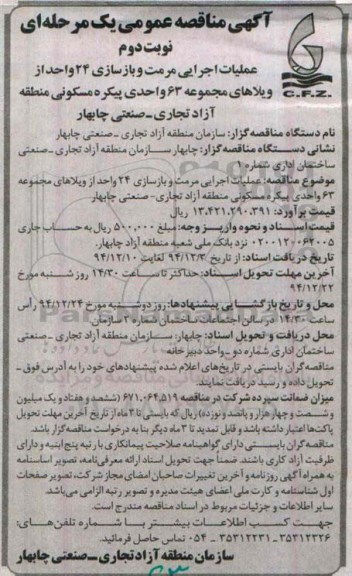 آگهی مناقصه عمومی یک مرحله ای
نوبت دوم
C.F.Z.
عملیات اجرایی مرمت و بازسازی ۲۴ واحد از
ویلاهای مجموعه ۶۳ واحدی پیکره مسکونی منطقه
آزاد تجاری_صنعتی چابهار
نام دستگاه مناقصه گزار: سازمان منطقه آزاد تجاری _صنعتی چابهار
نشانی دستگاه مناقصه گزار: چابهار سازمان منطقه آزاد تجاری _صنعتی
ساختمان اداری شماره ۱
موضوع مناقصه: عملیات اجرایی مرمت و بازسازی ۲۴ واحد از ویلاهای مجموعه
۶۳ واحدی پیکره مسکونی منطقه آزاد تجاری- صنعتی چابهار
قیمت برآورد: ۱۳.۴۲۱.۲۹۰.۳۹۱ ریال
قیمت اسناد و نحوه واریز وجه: مبلغ ۵۰۰,۰۰۰ ریال به حساب جاری
۰۲۰۰۱۲۰۰۶۲۰۰۵ نزد بانک ملی شعبه منطقه آزاد چابهار.
تاریخ دریافت اسناد: از تاریخ ۹۴/۱۲/۳ لغایت ۹۴/۱۲/۱۰
آخرین مهلت تحویل اسناد: حداکثر تا ساعت ۱۴/۳۰ روز شنبه مورخ
۹۴/۱۲/۲۲
محل و تاریخ بازگشایی پیشنهادها: روز دوشنبه مورخ ۹۴/۱۲/۲۴ رأس
ساعت ۱۴/۳۰ در سالن اجتماعات ساختمان شماره ۲ سازمان
محل دریافت و تحویل اسناد: چابهار: سازمان منطقه آزاد تجاری _صنعتی
ساختمان اداری شماره دو _واحد دبیرخانه
مناقصه گران بایستی در تاریخ های اعلام شده پیشنهادهای خود را به آدرس فوق
تحویل داده و رسید دریافت نمایند.
میزان ضمانت سپرده شرکت در مناقصه ۶۷۱,۰۶۴,۵۱۹ (ششصد و هفتاد و یک میلیون
و شصت و چهار هزار و پانصد و نوزده) ریال که بایستی تا ۳ ماه از تاریخ آخرین مهلت تحویل
پاکت ها اعتبار داشته باشد و قابل تمدید تا ۳ ماه دیگر بنا به درخواست مناقصه گزار باشد.
مناقصه گران بایستی دارای گواهینامه صلاحیت پیمانکاری با رتبه پنج ابنیه و دارای
ظرفیت آزاد کاری باشند. ضمناً جهت تحویل اسناد ارائه معرفی نامه، تصویر اساسنامه
به همراه آگهی روزنامه و آخرین تغییرات صاحبان امضای مجاز شرکت، تصویر صفحات
اول شناسنامه و کارت ملی اعضای هیئت مدیره و تصویر رتبه الزامی می باشد.
سایر اطلاعات و جزئیات مربوط در اسناد مناقصه مندرج است.
جهت کسب اطلاعات بیشتر با شماره تلفن های:
۳۵۳۱۲۳۲۶ - ۳۵۳۱۲۲۳۱ - ۰۵۴ تماس حاصل فرمائید.
سازمان منطقه آزاد تجاری _صنعتی چابهار